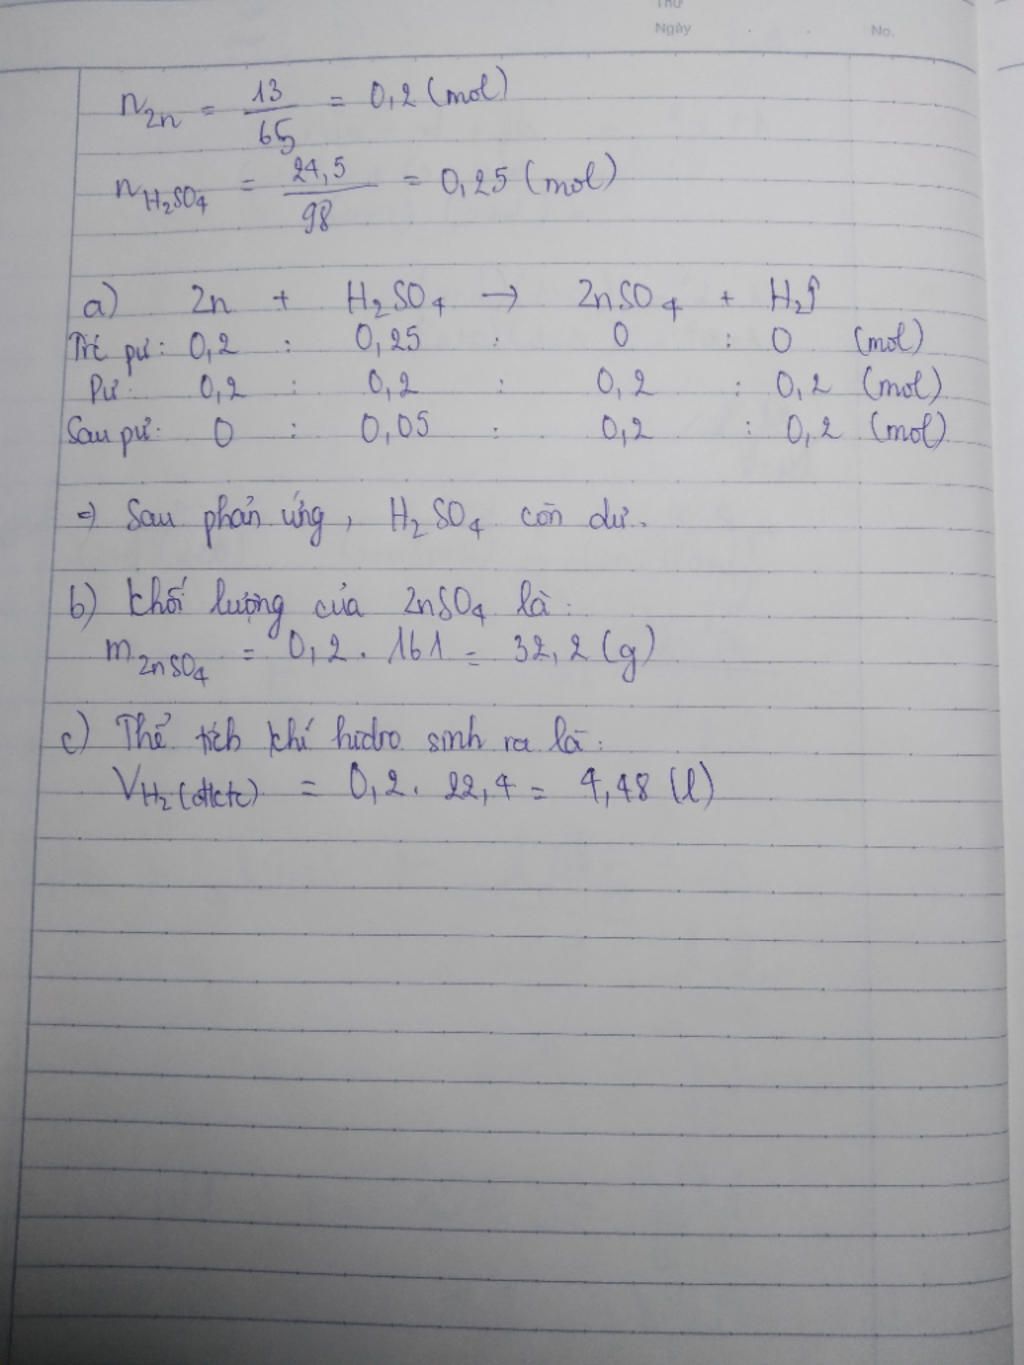 Thứ
Ngày . . No.
n Zn = 13/65 = 0,2 (mol)
n H₂SO₄ = 24,5/98 = 0,25 (mol)
a) Zn + H₂SO₄ → ZnSO₄ + H₂↑
Trc pư: 0,2 : 0,25 : 0 : 0 (mol)
Pư: 0,2 : 0,2 : 0,2 : 0,2 (mol)
Sau pư: 0 : 0,05 : 0,2 : 0,2 (mol)
⇒ Sau phản ứng, H₂SO₄ còn dư.
b) Khối lượng của ZnSO₄ là:
m ZnSO₄ = 0,2 . 161 = 32,2 (g)
c) Thể tích khí hidro sinh ra là:
V H₂ (đktc) = 0,2 . 22,4 = 4,48 (l)